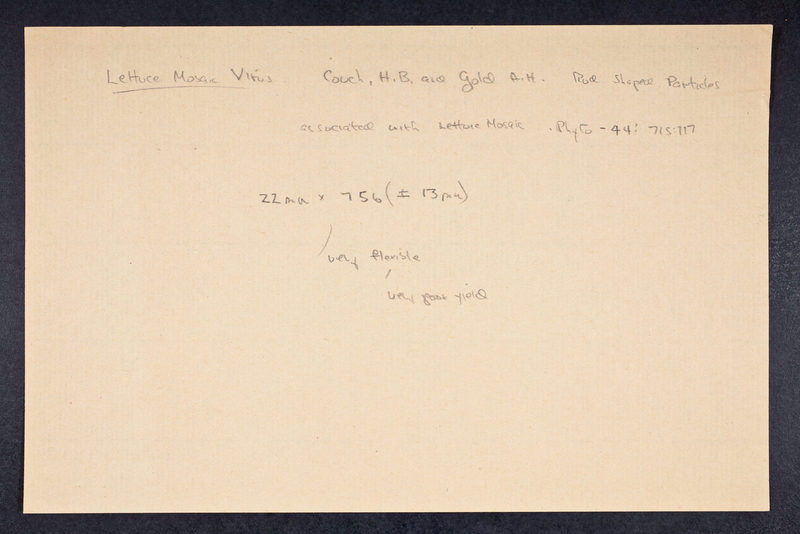 Lettuce Mosaic Virus Couch, H.B. and Gold A.H. Rod Shaped Particles
associated with Lettuce Mosaic. Phyto - 44: 715:717
22mu × 756 (± 13mu)
very flexible
very poor yield